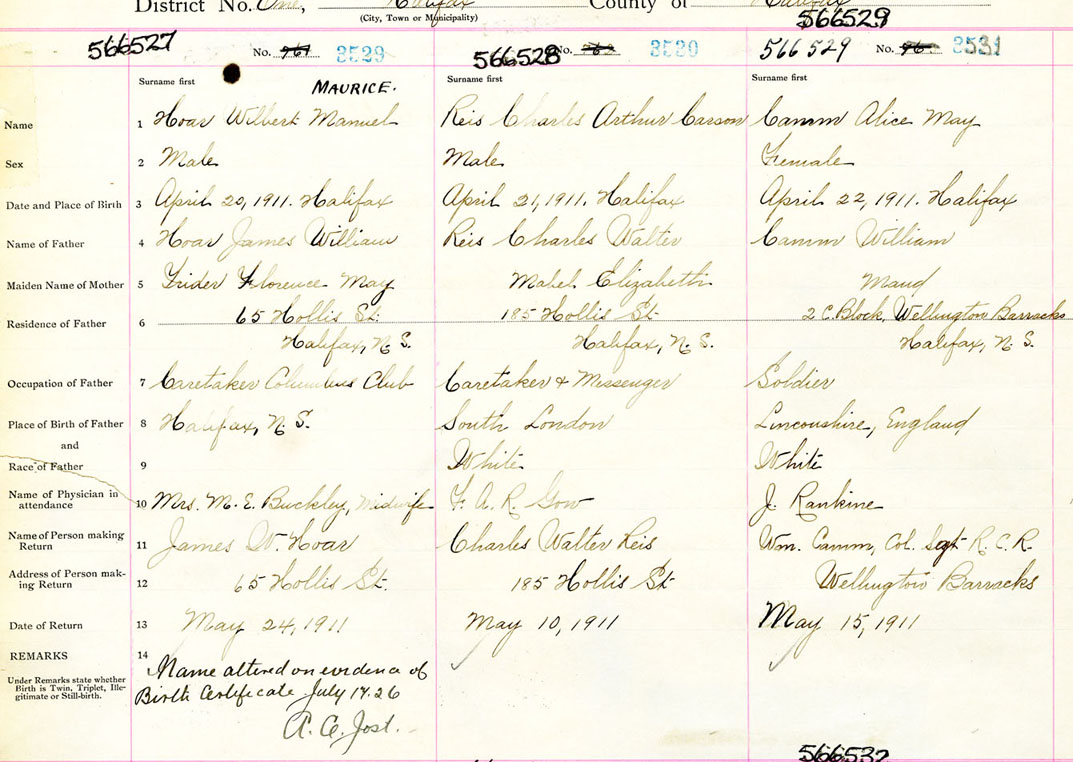 District No. One, Halifax County of Halifax
(City, Town or Municipality)
566529
566527 No. 3529 566528 No. 3530 566529 No. 3531
Surname first Surname first Surname first
MAURICE.
Name 1 Hoar Wilbert Manuel Reis Charles Arthur Carson Camm Alice May
Sex 2 Male Male Female
Date and Place of Birth 3 April 20, 1911. Halifax April 21, 1911. Halifax April 22, 1911. Halifax
Name of Father 4 Hoar James William Reis Charles Walter Camm William
Maiden Name of Mother 5 Trider Florence May Mabel Elizabeth Maud
Residence of Father 6 65 Hollis St. 185 Hollis St 2 C. Block, Wellington Barracks
Halifax, N. S. Halifax, N. S. Halifax, N. S.
Occupation of Father 7 Caretaker Columbus Club Caretaker & Messenger Soldier
Place of Birth of Father 8 Halifax, N. S. South London Lincolnshire, England
and
Race of Father 9 White White
Name of Physician in attendance 10 Mrs. M. E. Buckley, Midwife F. A. R. Gow J. Rankine
Name of Person making Return 11 James W. Hoar Charles Walter Reis Wm. Camm, Col. Sgt R. C. R.
Address of Person mak-
ing Return 12 65 Hollis St. 185 Hollis St Wellington Barracks
Date of Return 13 May 24, 1911 May 10, 1911 May 15, 1911
REMARKS 14
Under Remarks state whether
Birth is Twin, Triplet, Ille-
gitimate or Still-birth.
Name altered on evidence of
Birth Certificate July 17. 26
A. C. Jost.
566532